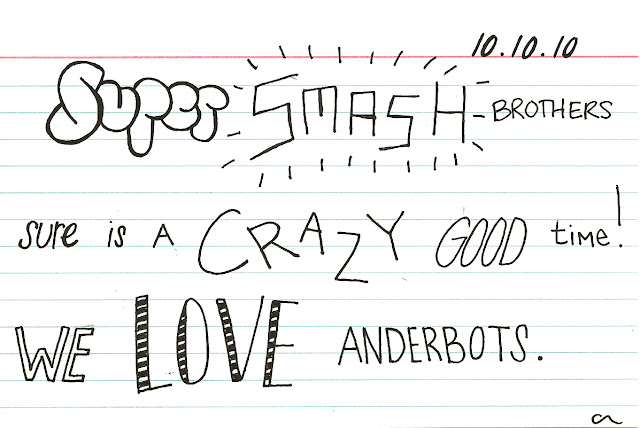 10.10.10
Super SMASH BROTHERS
sure is A CRAZY GOOD time!
WE LOVE ANDERBOTS.